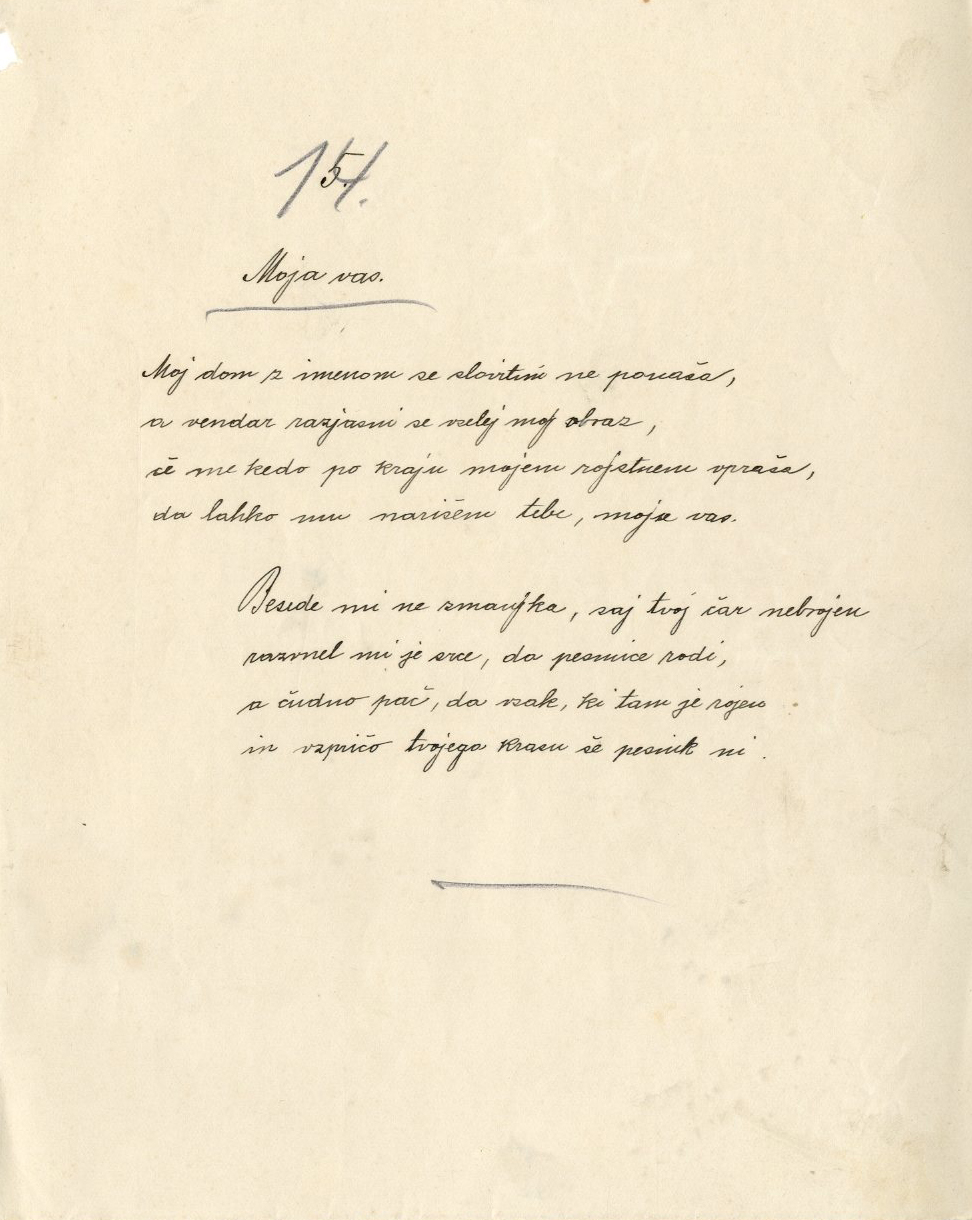 14.
5.
Moja vas.
Moj dom z imenom se slovitim ne ponaša,
a vendar razjasni se vselej moj obraz,
če me kedo po kraju mojem rojstnem vpraša,
da lahko mu narišem tebe, moja vas.
Besede mi ne zmanjka, saj tvoj čar nebrojen
razvnel mi je srce, da pesmice rodi,
a čudno pač, da vsak, ki tam je rojen
in vzpričo tvojega krasu še pesnik ni.